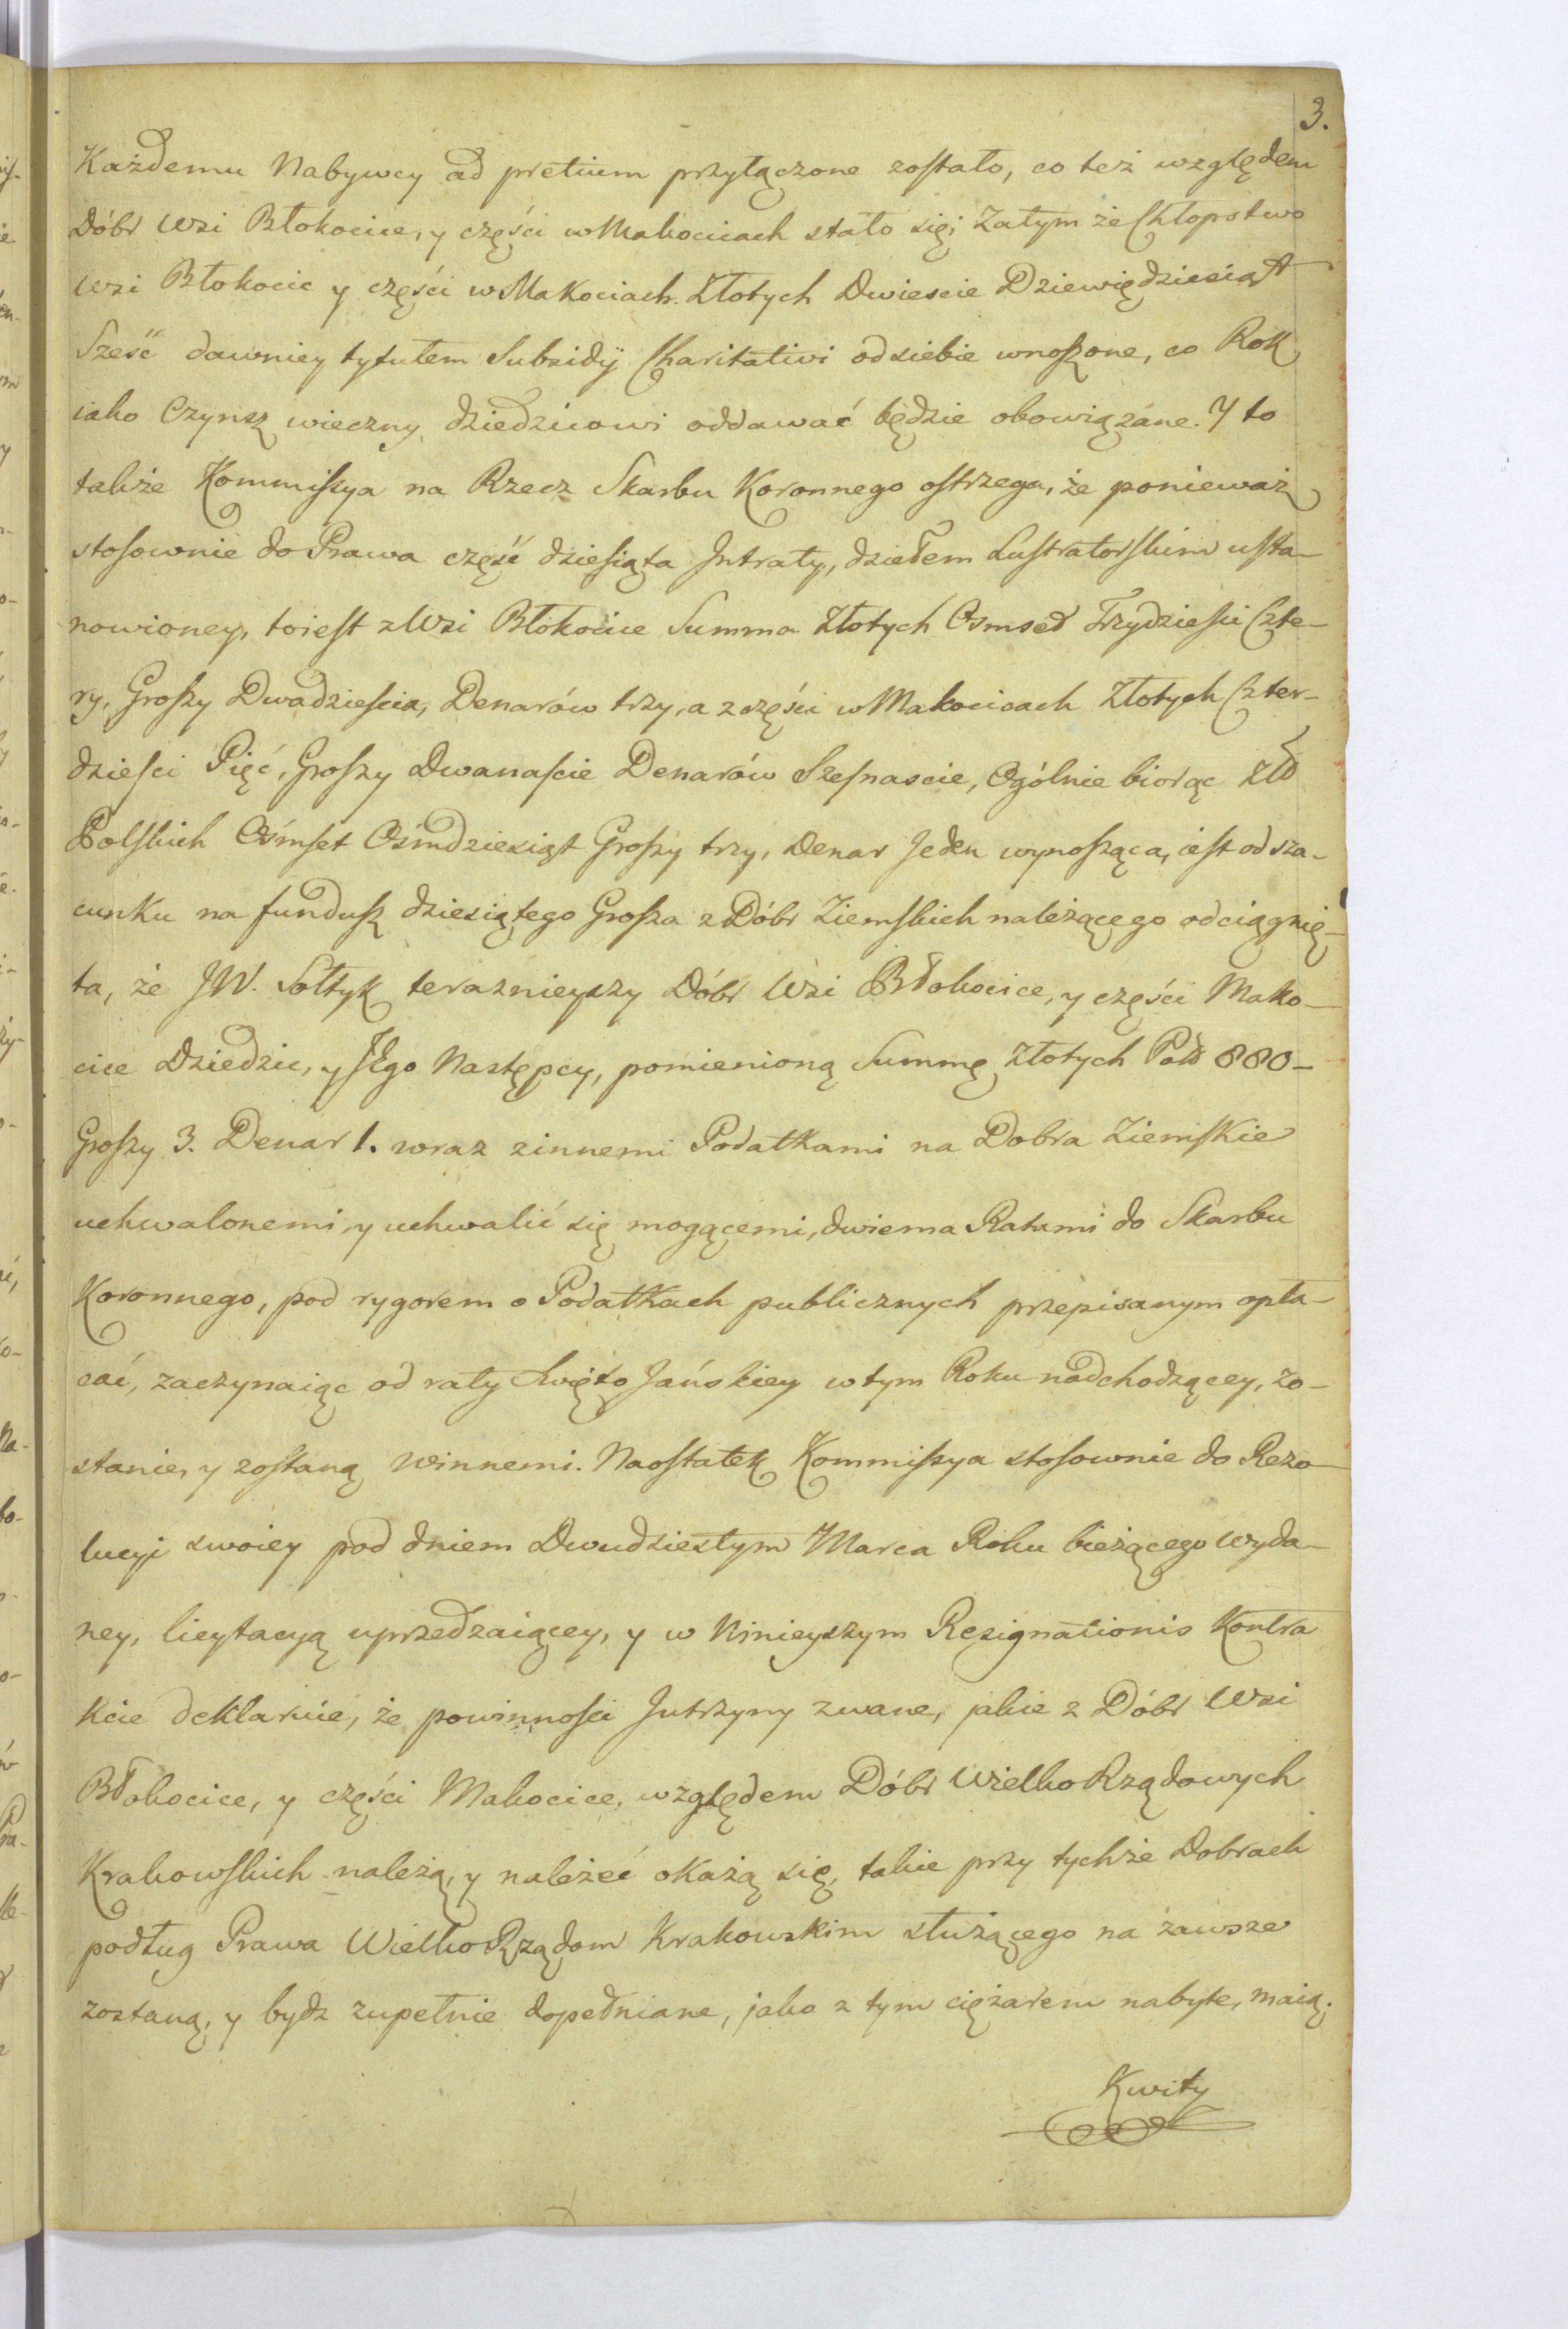 3.
Każdemu Nabywcy ad pretium przyłączone zostało, co też względem
Dóbr Wsi Błokocice, y części w Makocicach stało się; Zatym że Chłopstwo
Wsi Błokocic y części w Makociach. Złotych Dwiescie Dziewiędziesiąt
Sześć dawniey tytułem Subsidÿ Charitativi od siebie wnoszone, co Rok
iako Czynsz wieczny dziedzicowi oddawać będzie obowiązane. Y to
także Kommissya na Rzecz Skarbu Koronnego ostrzega, że ponieważ
stosownie do Prawa część dziesiąta Jntraty, dziełem Lustratorskim usta-
nowioney, toiest z Wsi Błokocice Summa Złotych Osmset Trzydziesci Czte-
ry, Groszy Dwadziescia, Denarów trzy, a z części w Makocicach Złotych Czter-
dziesci Pięć, Groszy Dwanascie Denarów Szesnascie, Ogólnie biorąc Złł
Polskich Ośmset Ośmdziesiąt Groszy trzy, Denar Jeden wynosząca, iest od sza-
cunku na fundusz dziesiątego Grosza z Dóbr Ziemskich należącego odciągnię-
ta, że JW. Sołtyk teraznieyszy Dóbr Wsi Błokocice, y części Mako-
cice Dziedzic, y Jego Następcy, pomienioną Summę Złotych Pols 880-
Groszy 3. Denar 1. wraz z innemi Podatkami na Dobra Ziemskie
uchwalonemi, y uchwalić się mogącemi, dwiema Ratami do Skarbu
Koronnego, pod rygorem o Podatkach publicznych przepisanym opła-
cać, zaczynaiąc od raty Święto Jańskiey w tym Roku nadchodzącey, zo-
stanie, y zostaną winnemi. Naostatek Kommissya stosownie do Rezo-
lucyi swoiey pod dniem Dwudziestym Marca Roku bieżącego wyda-
ney, licytacyą uprzedzaiącey, y w Ninieyszym Resignationis Kontra
kcie deklaruie, że powinności Jutrzyny zwane, jakie z Dóbr Wsi
Błokocice, y części Makocice, względem Dóbr WielkoRządowych
Krakowskich należą, y należeć okażą się, takie przy tychże Dobrach
podług Prawa WielkoRządom Krakowskim służącego na zawsze
zostaną, y bydz zupełnie dopełniane, jako z tym ciężarem nabyte, maią.
Kwity